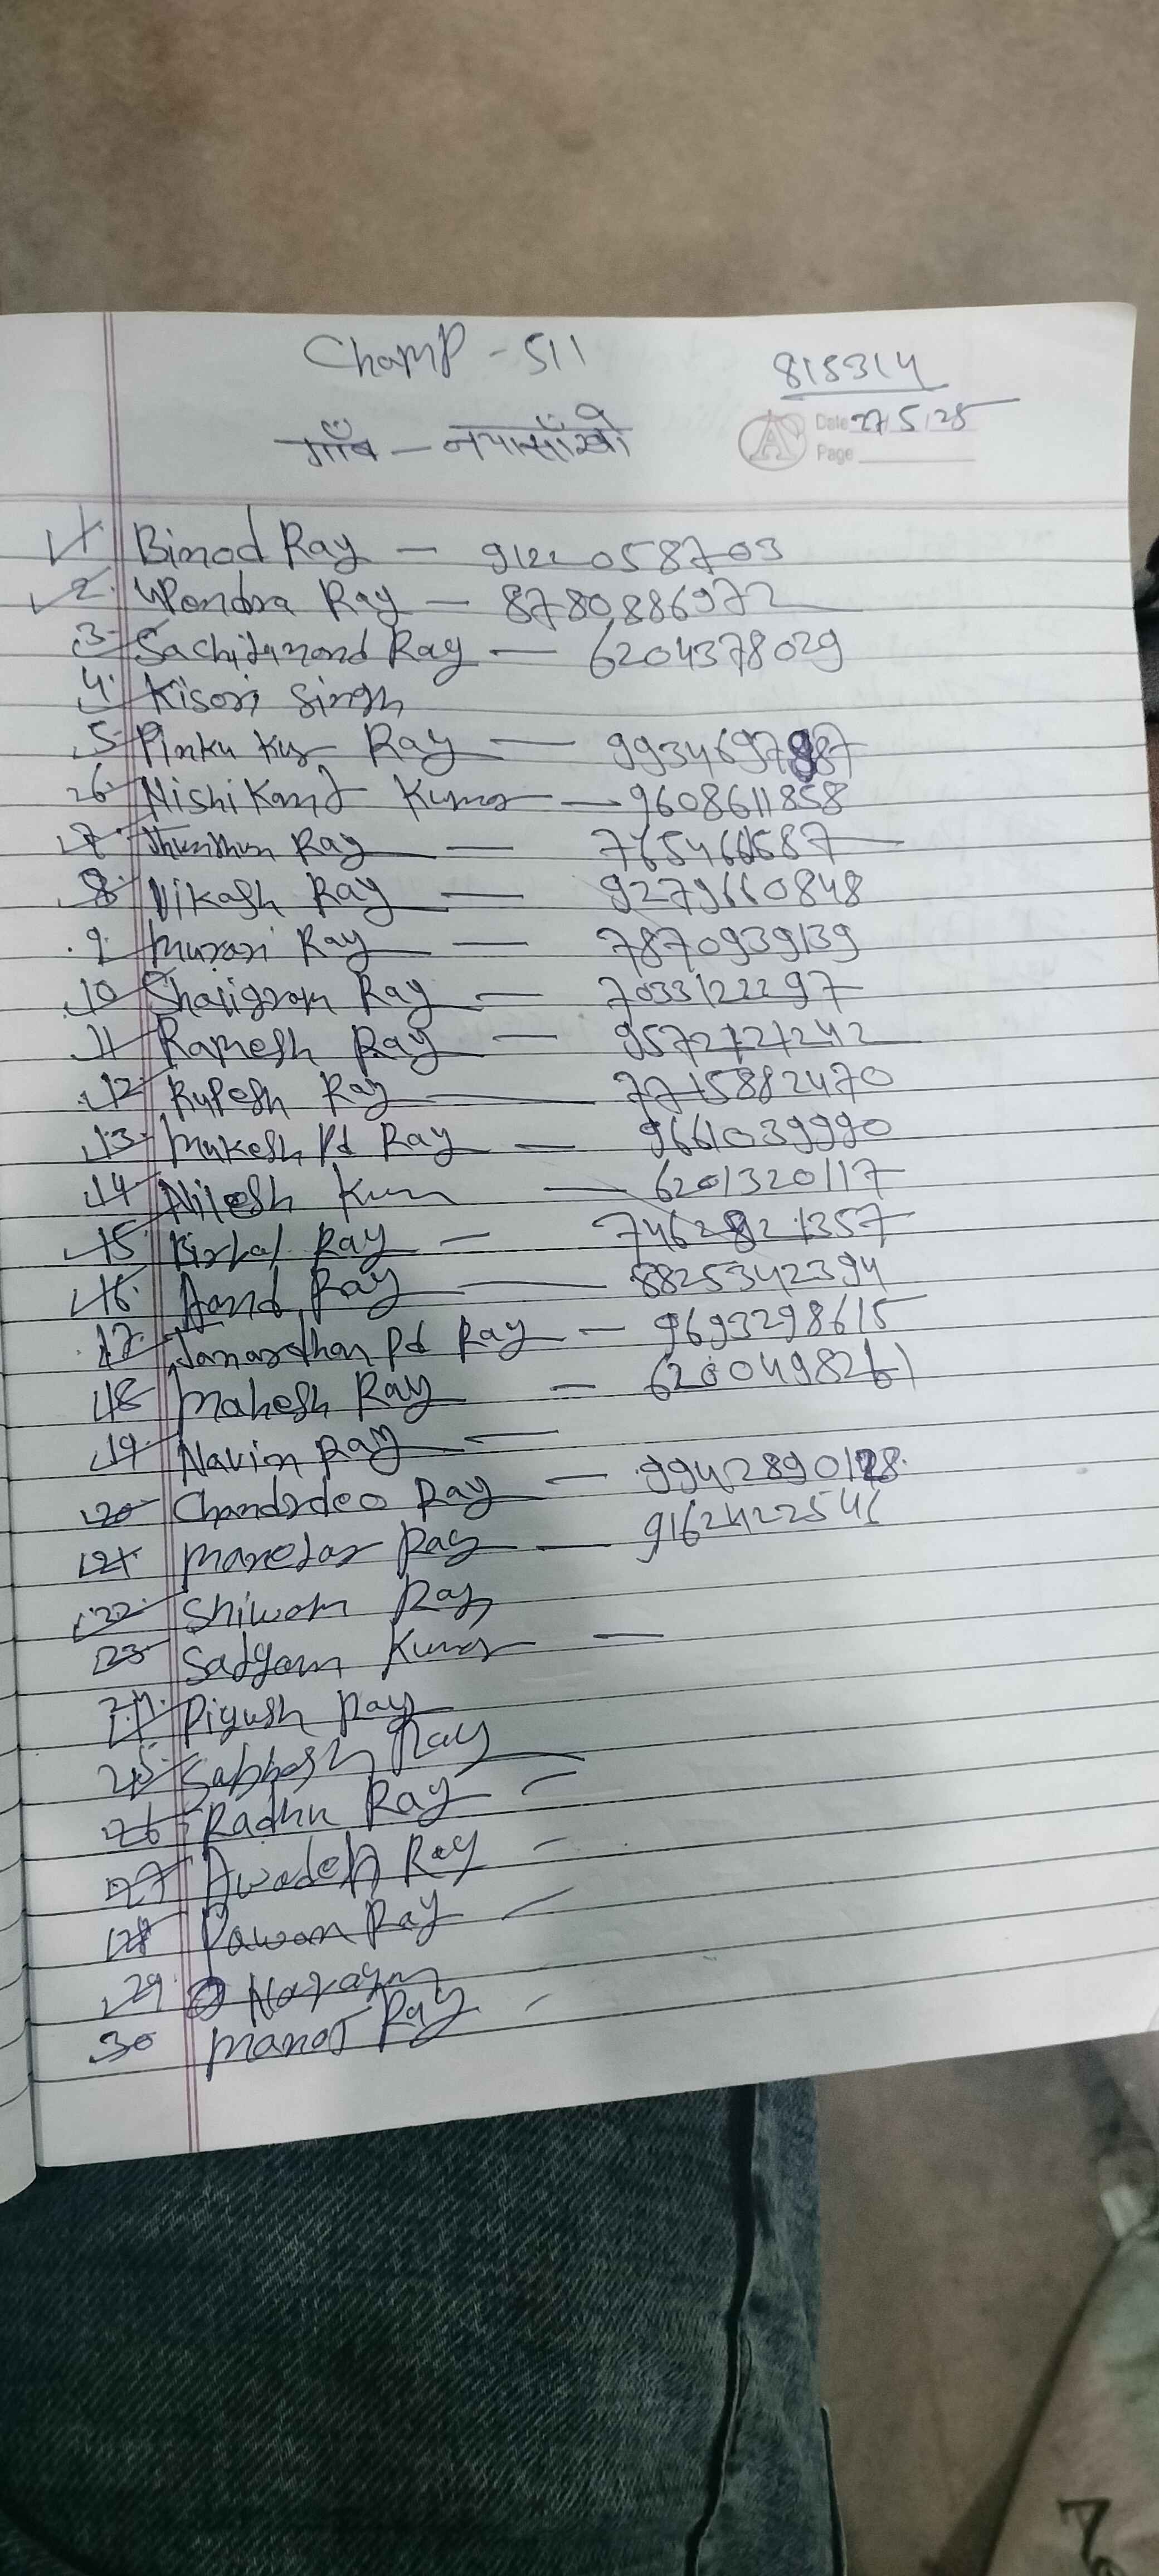 Champ - 511
815314
गाँव - नयासाँखो
Date 27/5/25
Page
1. Binod Ray - 9122058703
2. Upendra Ray - 8780886972
3. Sachidanand Ray - 6204378029
4. Kisori Singh
5. Pinku Kr Ray - 9934697987
6. Nishikant Kumar - 9608611858
7. Jhunjhun Ray -
8. Vikash Ray - 9279660848
9. Murari Ray - 7870939139
10 Shaligram Ray - 7033122297
11 Ramesh Ray - 9572727242
12 Rupesh Ray - 7715882470
13 Mukesh Pd Ray - 9661039990
14 Nilesh Kum - 6201320117
15 Ray -
16. Ray - 8825342394
17. Janardhan Pd Ray - 9693298615
18 Mahesh Ray -
19 Navin Ray -
20 Chandrdeo Ray -
21 Ray - 9162422546
22 Shiwam Ray
23 Satyam Kumar -
24. Piyush Ray
25 Ray
26 Radhu Ray -
27 Awadesh Ray -
28 Pawan Ray -
29. Narayan
30 Manoj Ray -